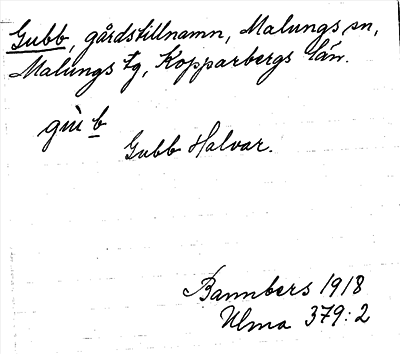 Gubb, gårdstillnamn, Malungs sn,
Malungs tg, Kopparbergs län.
gù b
Gubb Halvar.
Bannbers 1918
Ulma 379:2